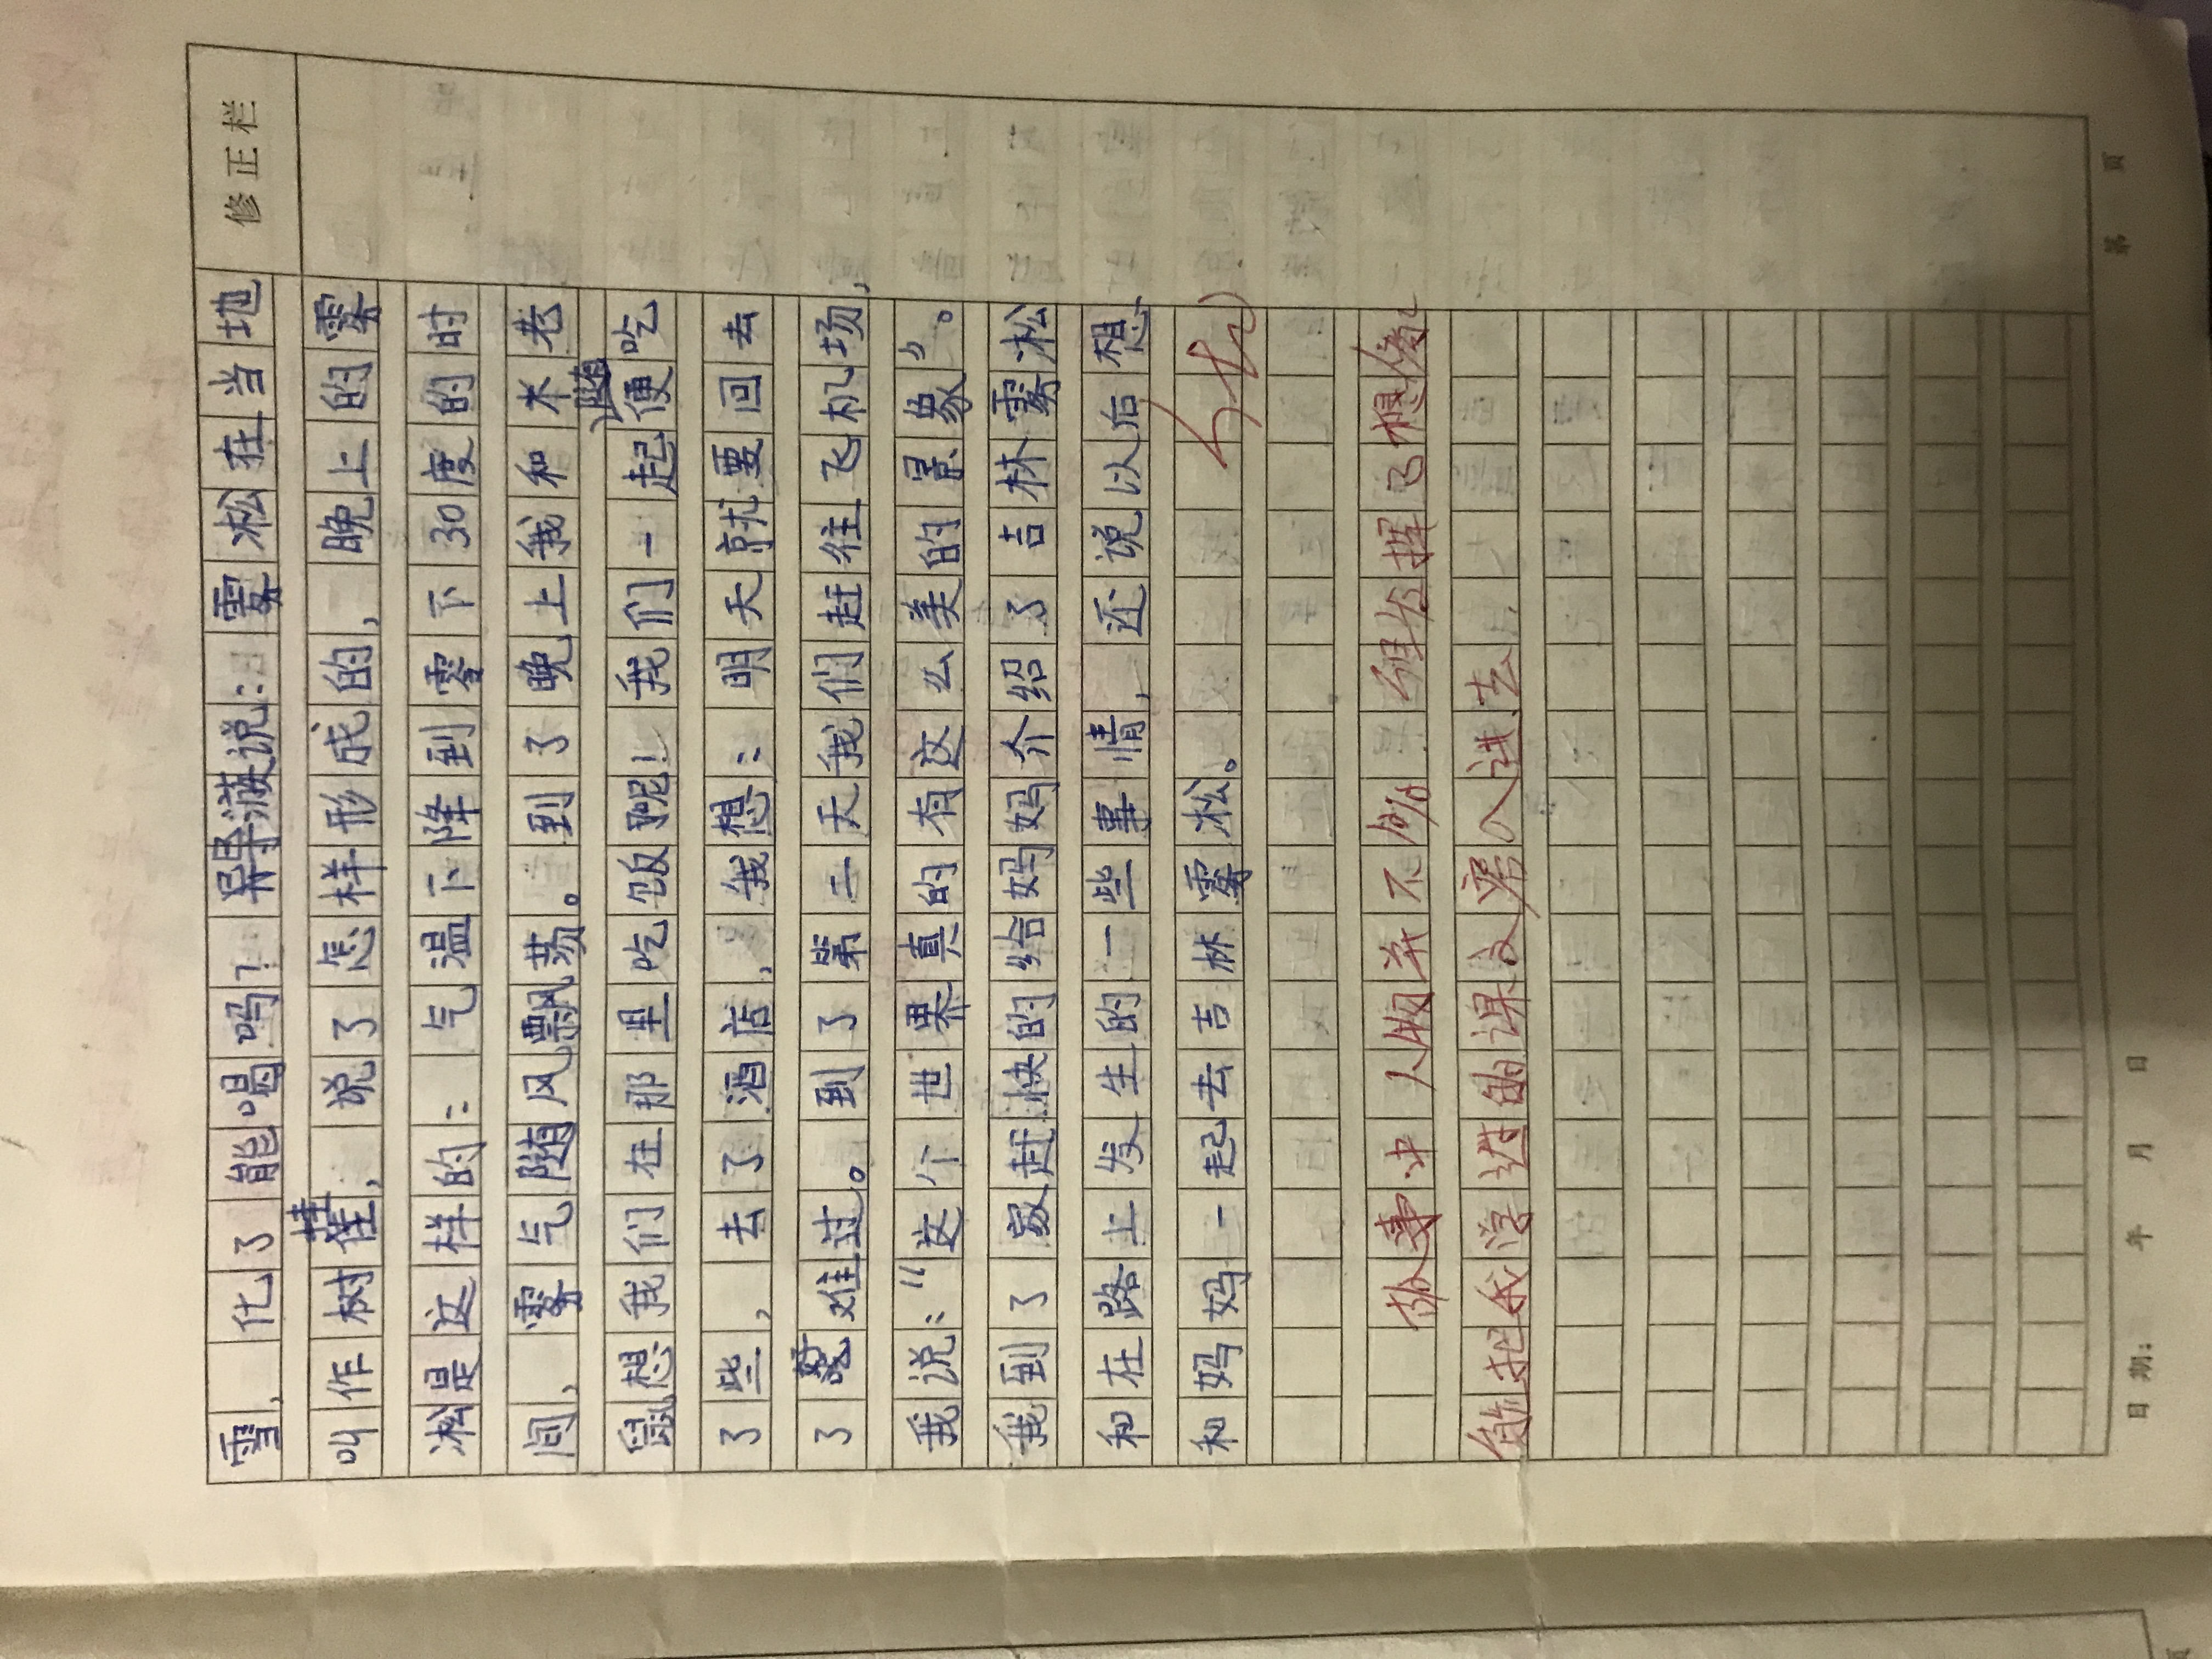 修正栏
雪，化了能喝吗？导游说：雾凇在当地
叫作树挂，说了怎样形成的，晚上的雾
凇是这样的：气温下降到零下30度的时
间，雾气随风飘荡。到了晚上我和木卷
鼠想我们在那里吃饭呢！我们一起随便吃
了些，去了酒店，我想：明天就要回去
了难过。到了第二天我们赶往飞机场，
我说：“这个世界真的有这么美的景象”。
我到了家赶快的给妈妈介绍了吉林雾凇
和在路上发生的一些事情，还说以后想
和妈妈一起去吉林雾凇。
故事中人物并不
能把我学过的课文 进去
日期： 年 月 日 第 页